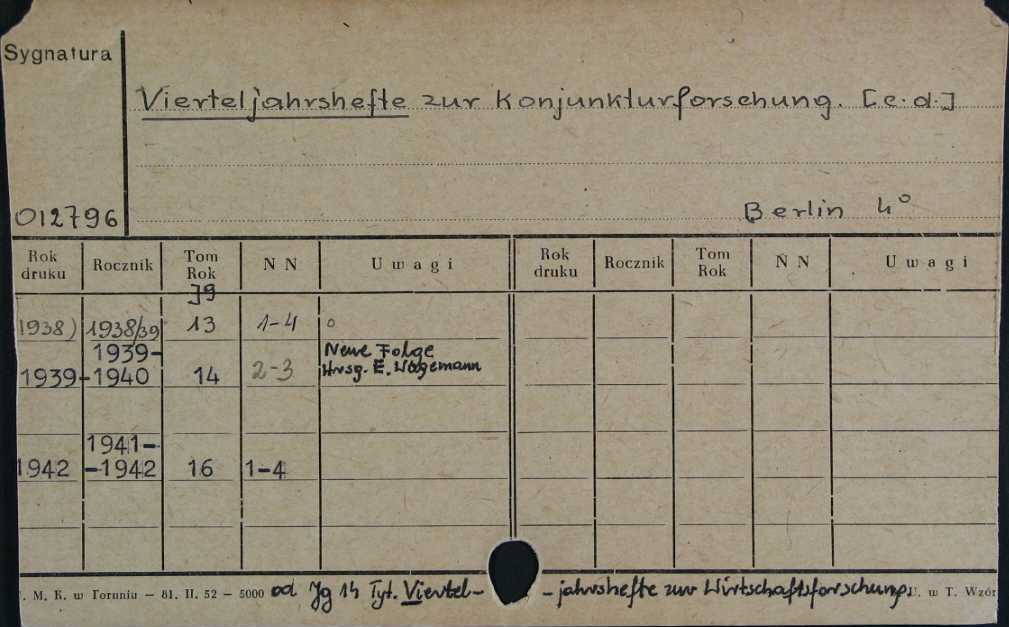 Sygnatura
Vierteljahrshefte zur Konjunkturforschung. [c.d.]
012796
Berlin 4°
Rok druku Rocznik Tom Rok N N Uwagi Rok druku Rocznik Tom Rok N N Uwagi
Jg
1938) 1938/39 13 1-4 o
1939- Neue Folge
1939 -1940 14 2-3 Hrsg. E. Wagemann
1941-
1942 -1942 16 1-4
. M. K. w Toruniu — 81. II. 52 — 5000 od Jg 14 Tyt. Viertel- -jahrshefte zur Wirtschaftsforschung. U. w T. Wzór